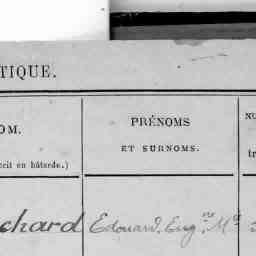 TIQUE.
OM. PRÉNOMS NU
crit en bâtarde.) ET SURNOMS. tr
chard Edouard, Eug.ne M.d